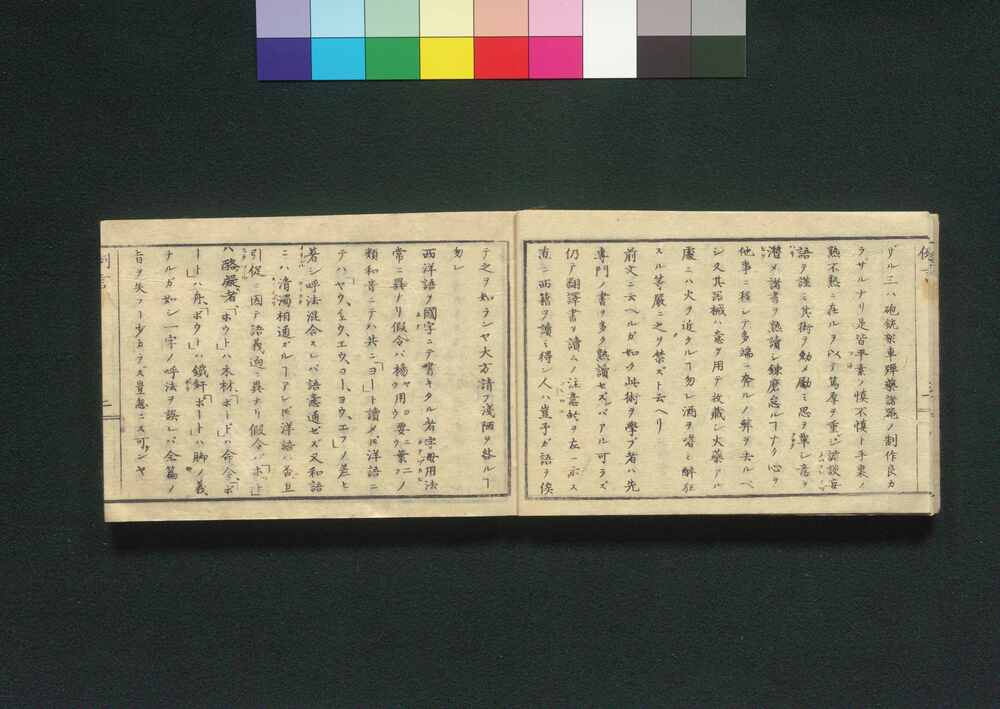 例言
ヅルニハ砲銃架車弾藥諸器ノ制作良カ
ラサルナリ是皆平素ノ慎不慎ト手裏ノ
熟不熟ニ在ルヲ以テ篤厚ヲ重ジ諧謔妄
語ヲ謹ミ其術ヲ勉メ勵ミ思ヲ覃シ意ヲ
潜メ諸書ヲ熟讀シ錬磨怠ルヿナク心ヲ
他事ニ移シテ多端ニ奔ルノ弊ヲ去ルベ
シ又其器械ハ意ヲ用テ收藏シ火藥アル
處ニハ火ヲ近クルヿ勿レ酒ヲ嗜ミ醉狂
スル等嚴ニ之ヲ禁ズト云ヘリ
前文ニ云ヘルガ如ク此術ヲ學ブ者ハ先
專門ノ書ヲ多ク熟讀セズンバアル可ラズ
仍テ翻譯書ヲ讀ムノ注意ヲ左ニ示ス
直ニ西籍ヲ讀ミ得シ人ハ豈予ガ語ヲ俟
テ之ヲ如ランヤ大方請フ淺陋ヲ咎ルヿ
勿レ
西洋語ヲ國字ニテ書キタル者字母用法
常ニ異ナリ假令バ楊ヤ用ロ要ニ葉フノ
類和音ニテハ共ニ「ヨー」ト讀メドモ洋語ニ
テハ「ヤウ、ヱウ、エウ、ヨー、ヨウ、エフ」ノ差ヒ
若シ呼法混合スレバ語意通ゼズ又和語
ニハ清濁相通ガルヿアレドモ洋語ハ否且
引促ニ因テ語義逈ニ異ナリ假令バ「ホ」ト
ハ「ホウト」ハ木材、「ボード」ハ命令、「ボ
ート」ハ舟、「ボウト」ハ鐵釬「ポート」ハ脚ノ義
ナルガ如シ一字ノ呼法ヲ誤レバ全篇ノ
旨ヲ失フヿ少カラズ豈意ニス可ンヤ
例言
二